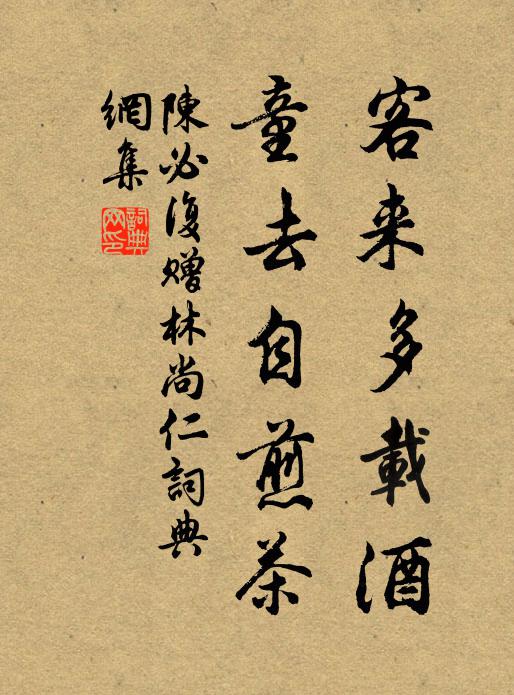 客来多載酒
童去自煎茶
陳必復贈林尚仁詞典
網集
詞典
网印